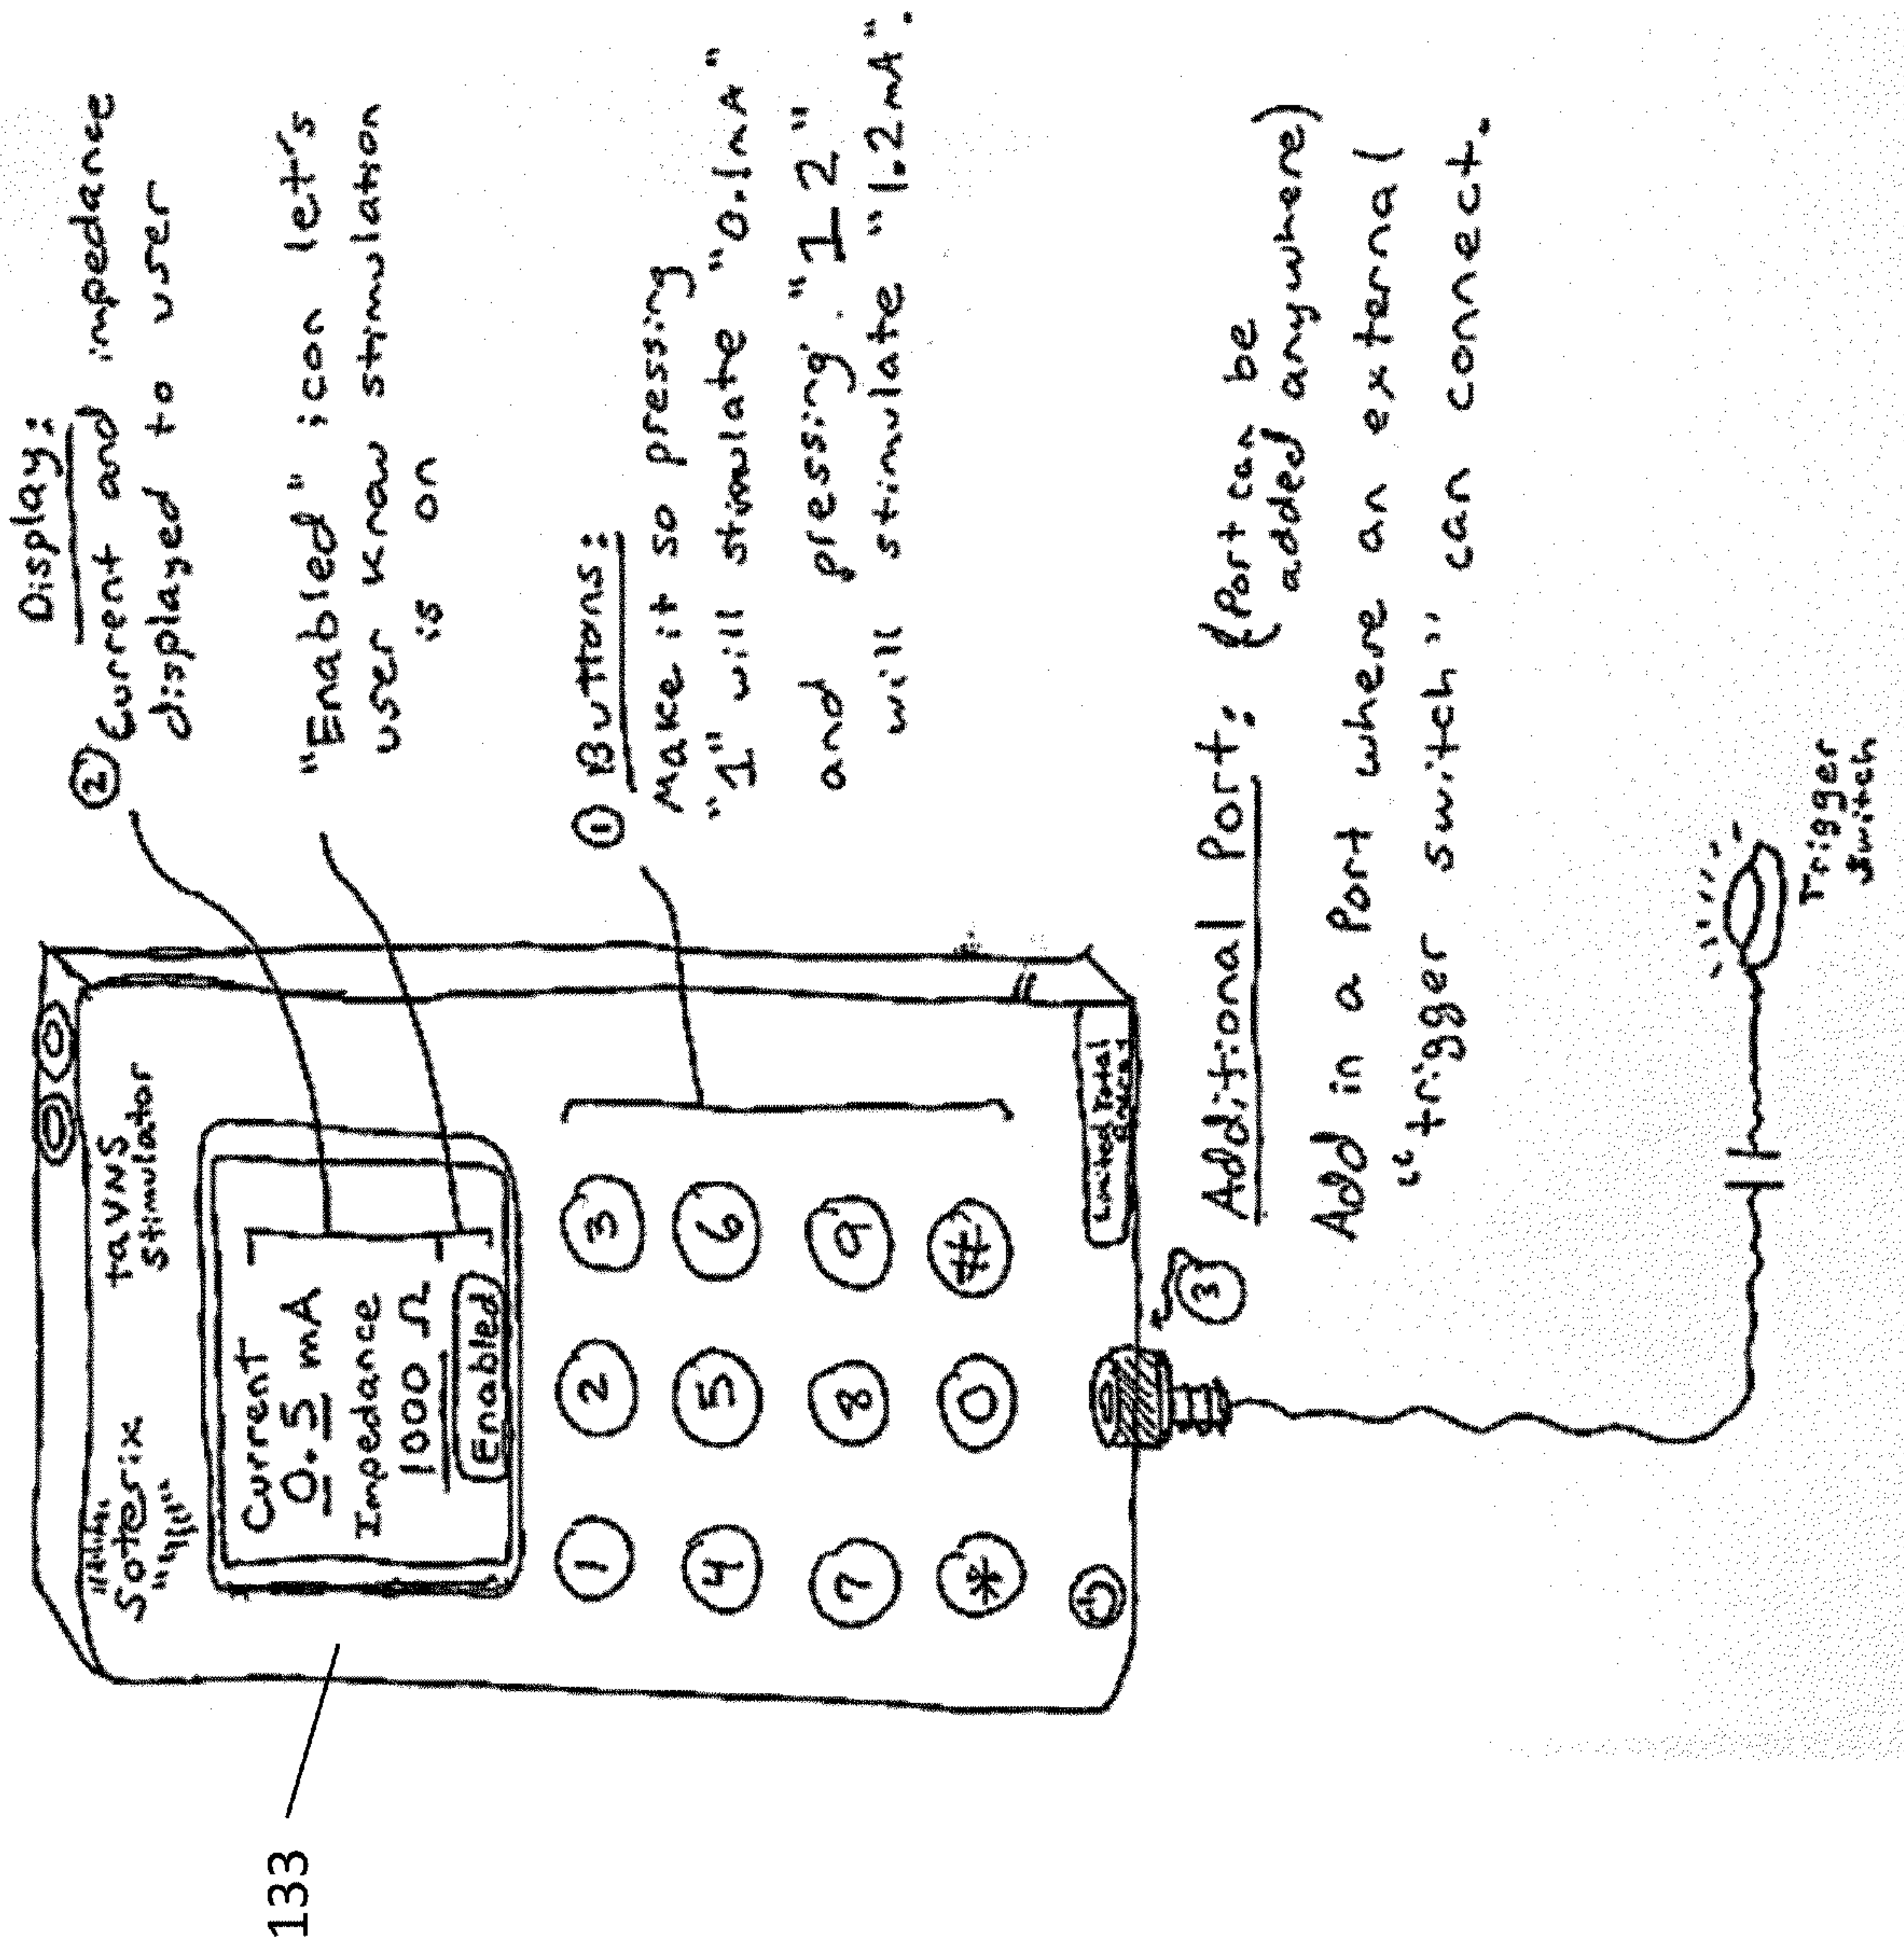 133
Soterix
taVNS
Stimulator
Current
0.5 mA
Impedance
1000 Ω
Enabled
1 2 3
4 5 6
7 8 9
* 0 #
Limited Total
Display:
② Current and impedance
displayed to user
"Enabled" icon let's
user know stimulation
is on
① Buttons:
Make it so pressing
"1" will stimulate "0.1mA"
and pressing "12"
will stimulate "1.2mA".
③ Additional Port: {Port can be
added anywhere)
Add in a Port where an external
"trigger switch" can connect.
Trigger
Switch